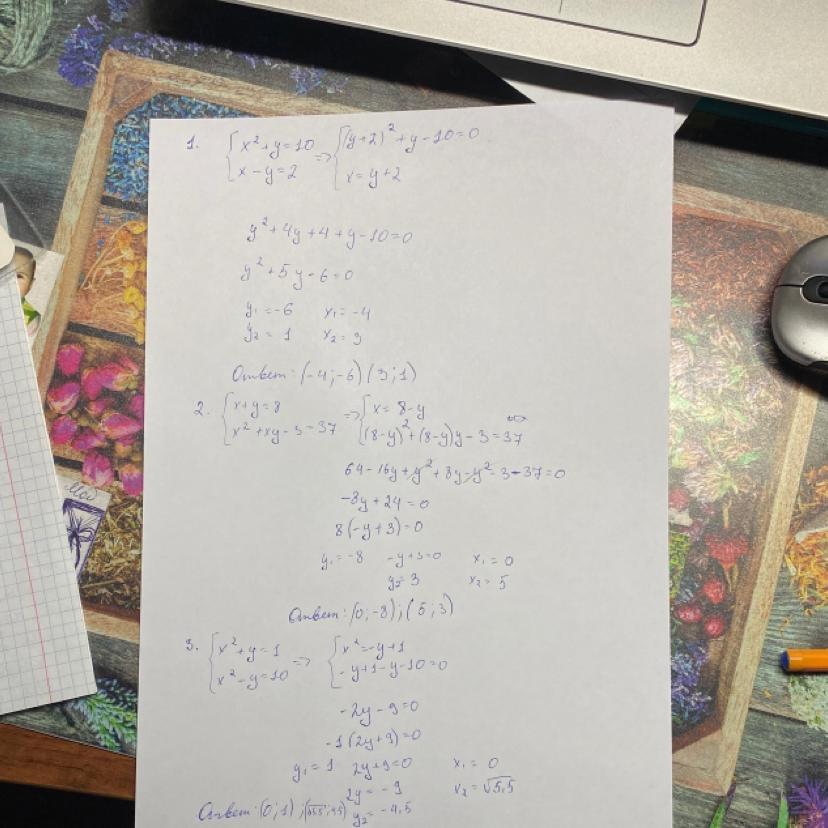 1. { x² + y = 10 => { (y+2)² + y - 10 = 0
{ x - y = 2 { x = y + 2
y² + 4y + 4 + y - 10 = 0
y² + 5y - 6 = 0
y₁ = -6 x₁ = -4
y₂ = 1 x₂ = 3
Ответ: (-4; -6) (3; 1)
2. { x + y = 8 => { x = 8 - y
{ x² + xy - 3 = 37 { (8-y)² + (8-y)y - 3 = 37
64 - 16y + y² + 8y - y² - 3 - 37 = 0
-8y + 24 = 0
8(-y + 3) = 0
y₁ = -8 -y + 3 = 0 x₁ = 0
y₂ = 3 x₂ = 5
Ответ: (0; -8); (5; 3)
3. { x² + y = 1 => { x² = -y + 1
{ x² - y = 10 { -y + 1 - y - 10 = 0
-2y - 9 = 0
-1(2y + 9) = 0
y₁ = 1 2y + 9 = 0 x₁ = 0
2y = -9 x₂ = √5,5
Ответ: (0; 1); y₂ = -4,5